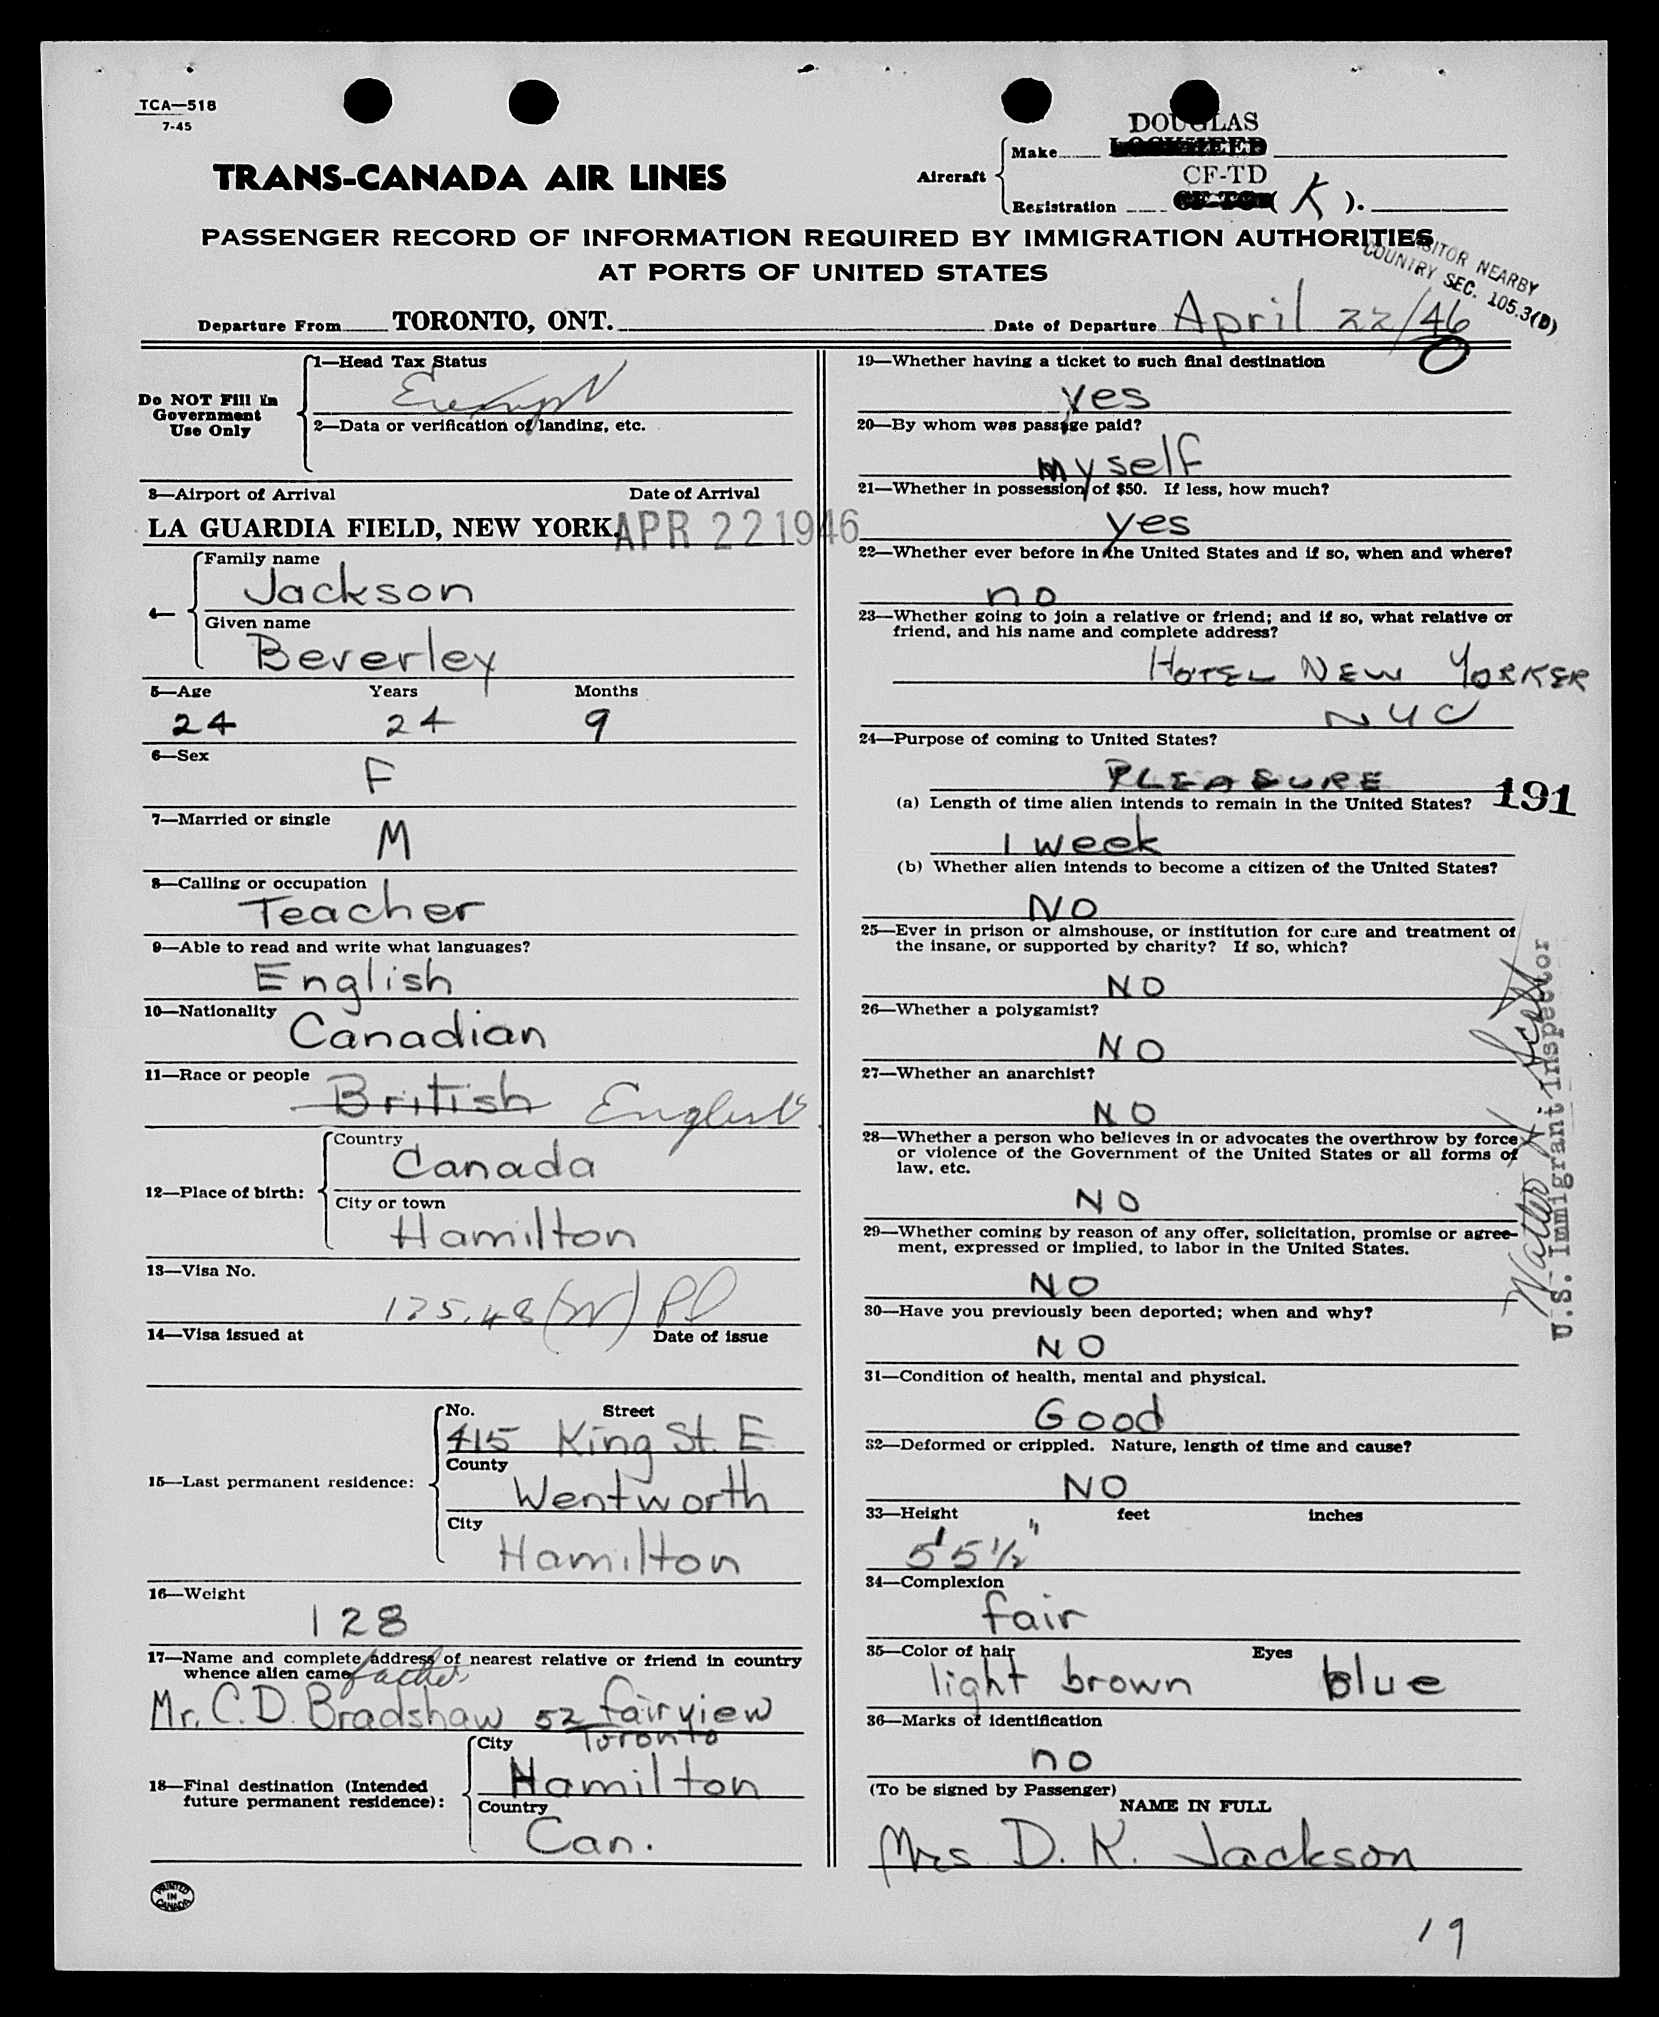 TCA—518
7-45
DOUGLAS
TRANS-CANADA AIR LINES
Aircraft
Make LOCKHEED
CF-TD
Registration ( K ).
PASSENGER RECORD OF INFORMATION REQUIRED BY IMMIGRATION AUTHORITIES
AT PORTS OF UNITED STATES
VISITOR NEARBY
COUNTRY SEC. 105.3(D)
Departure From TORONTO, ONT. Date of Departure April 22/46
Do NOT Fill in
Government
Use Only
1—Head Tax Status
Exempt
2—Data or verification of landing, etc.
3—Airport of Arrival Date of Arrival
LA GUARDIA FIELD, NEW YORK. APR 22 1946
4—
Family name
Jackson
Given name
Beverley
5—Age Years Months
24 24 9
6—Sex
F
7—Married or single
M
8—Calling or occupation
Teacher
9—Able to read and write what languages?
English
10—Nationality
Canadian
11—Race or people
British English
12—Place of birth:
Country
Canada
City or town
Hamilton
13—Visa No.
14—Visa issued at Date of issue
15—Last permanent residence:
No. Street
415 King St. E.
County
Wentworth
City
Hamilton
16—Weight
128
17—Name and complete address of nearest relative or friend in country
whence alien came father
Mr. C. D. Bradshaw 52 Fairview
Toronto
18—Final destination (Intended
future permanent residence):
City
Hamilton
Country
Can.
PRINTED
IN
CANADA
19—Whether having a ticket to such final destination
yes
20—By whom was passage paid?
myself
21—Whether in possession of $50. If less, how much?
yes
22—Whether ever before in the United States and if so, when and where?
no
23—Whether going to join a relative or friend; and if so, what relative or
friend, and his name and complete address?
HOTEL NEW YORKER
NYC
24—Purpose of coming to United States?
PLEASURE
191
(a) Length of time alien intends to remain in the United States?
1 week
(b) Whether alien intends to become a citizen of the United States?
NO
25—Ever in prison or almshouse, or institution for care and treatment of
the insane, or supported by charity? If so, which?
NO
26—Whether a polygamist?
NO
27—Whether an anarchist?
NO
28—Whether a person who believes in or advocates the overthrow by force
or violence of the Government of the United States or all forms of
law, etc.
NO
29—Whether coming by reason of any offer, solicitation, promise or agree-
ment, expressed or implied, to labor in the United States.
NO
30—Have you previously been deported; when and why?
NO
31—Condition of health, mental and physical.
Good
32—Deformed or crippled. Nature, length of time and cause?
NO
33—Height feet inches
5' 5 1/2"
34—Complexion
fair
35—Color of hair Eyes
light brown blue
36—Marks of identification
no
(To be signed by Passenger)
NAME IN FULL
Mrs D. K. Jackson
U.S. Immigrant Inspector
19